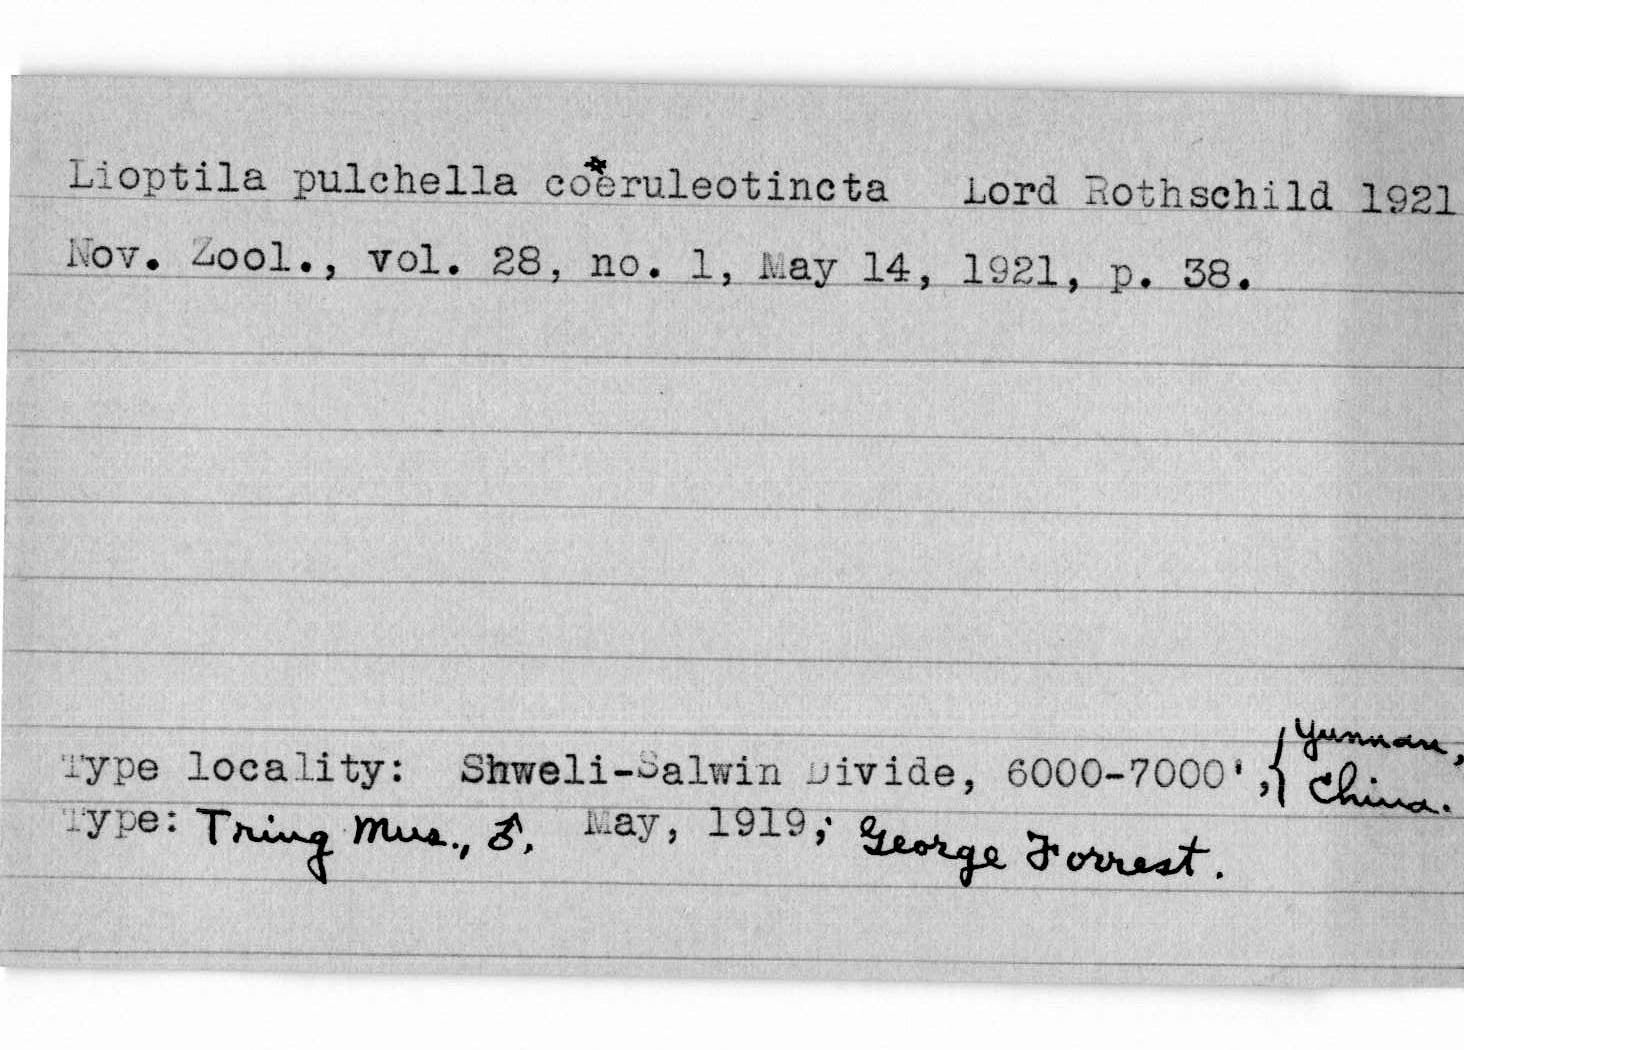 Lioptila pulchella coeruleotincta Lord Rothschild 1921
Nov. Zool., vol. 28, no. 1, May 14, 1921, p. 38.
Type locality: Shweli-Salwin Divide, 6000-7000', { Yunnan, China.
Type: Tring Mus., ♂. May, 1919; George Forrest.